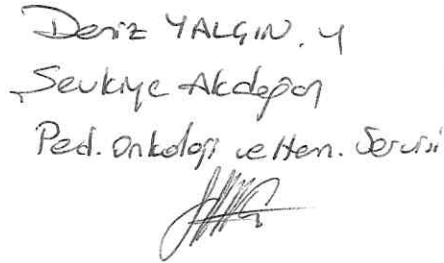 Deniz YALÇIN. Y
Şevkiye Akdoğan
Ped. Onkoloji ve Hem. Servisi